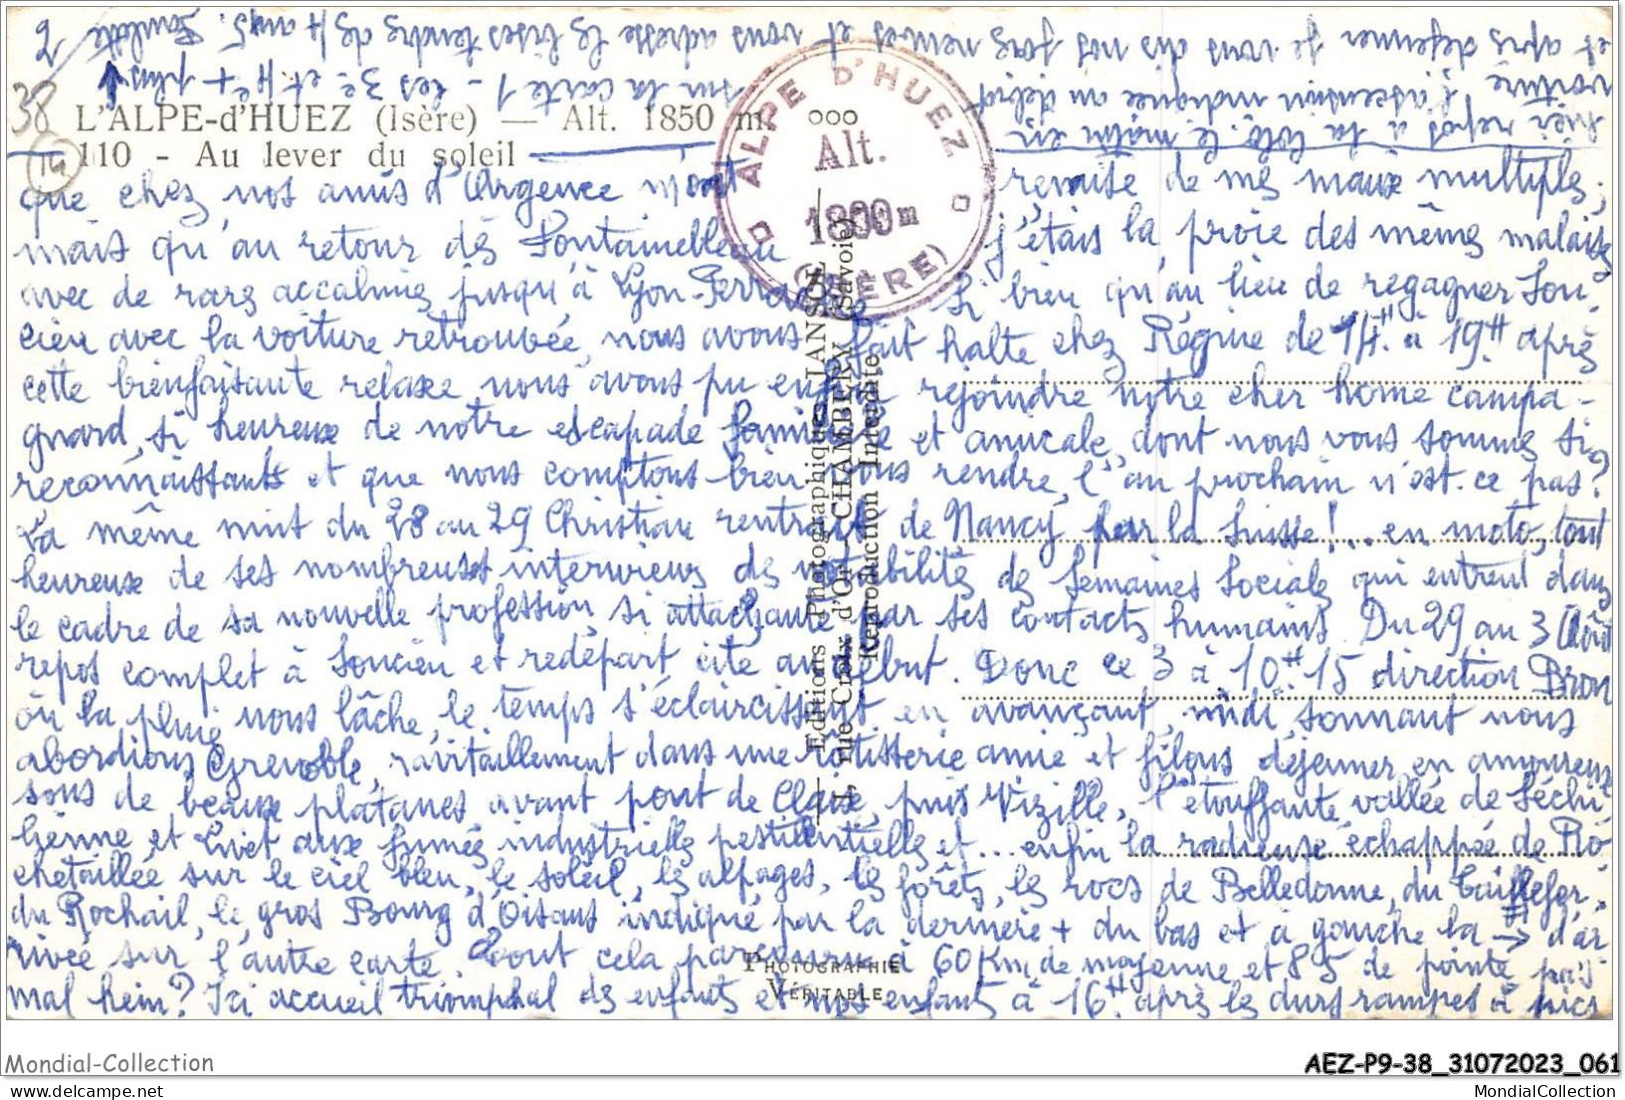 2
38
14
L'ALPE-d'HUEZ (Isère) — Alt. 1850 m. ooo
110 - Au lever du soleil
ALPE D'HUEZ
Alt.
1800 m
(ISÈRE)
que chez nos amis d'Argence mont remise de mes maux multiples,
mais qu'au retour dès Fontainebleau j'étais la proie des mêmes malaises
avec de rares accalmies jusqu'à Lyon-Perrache. Si bien qu'au lieu de regagner Sou-
cieu avec la voiture retrouvée, nous avons fait halte chez Régine de 14H. à 19H après
cette bienfaisante relaxe nous avons pu enfin rejoindre notre cher home campa-
gnard, si heureux de notre escapade familiale et amicale, dont nous vous sommes si
reconnaissants et que nous comptons bien vous rendre, l'an prochain n'est-ce pas?
La même nuit du 28 au 29 Christian rentrait de Nancy par la Suisse!... en moto, tout
heureux de ses nombreuses interviews de notabilités de Semaines Sociales qui entrent dans
le cadre de sa nouvelle profession si attachante par ses contacts humains. Du 29 au 3 Août
repos complet à Soucieu et redépart cité au début. Donc ce 3 à 10H.15 direction Bron
où la pluie nous lâche, le temps s'éclaircissant en avançant, midi sonnant nous
abordions Grenoble, ravitaillement dans une rôtisserie amie et filons déjeuner en amoureux
sous de beaux platanes avant pont de Claix, puis Vizille, l'étouffante vallée de Séchi-
lienne et Livet aux fumées industrielles pestilentielles et... enfin la radieuse échappée de Ro-
chetaillée sur le ciel bleu, le soleil, les alpages, les forêts, les rocs de Belledonne, du Taillefer,
du Rochail, le gros Bourg d'Oisans indiqué par la dernière + du bas et à gauche la → d'ar-
rivée sur l'autre carte. Tout cela parcouru à 60 Km de moyenne et 85 de pointe pas
mal hein? Ici accueil triomphal des enfants et nos enfants à 16H. après les durs rampes à pics
sur la carte 1 - les 3e et 4e + plus
hier repos à la colo. le matin en
voiture l'ascension indiquée au début
et après déjeuner je vous dis nos joies neuves et vous adresse les bises tendres des 4 aux 5. Paulette
Editions Photographiques JANSOL
1, rue Croix d'Or - CHAMBÉRY (Savoie)
Reproduction Interdite
PHOTOGRAPHIE
VÉRITABLE
Mondial-Collection
AEZ-P9-38_31072023_061
MondialCollection